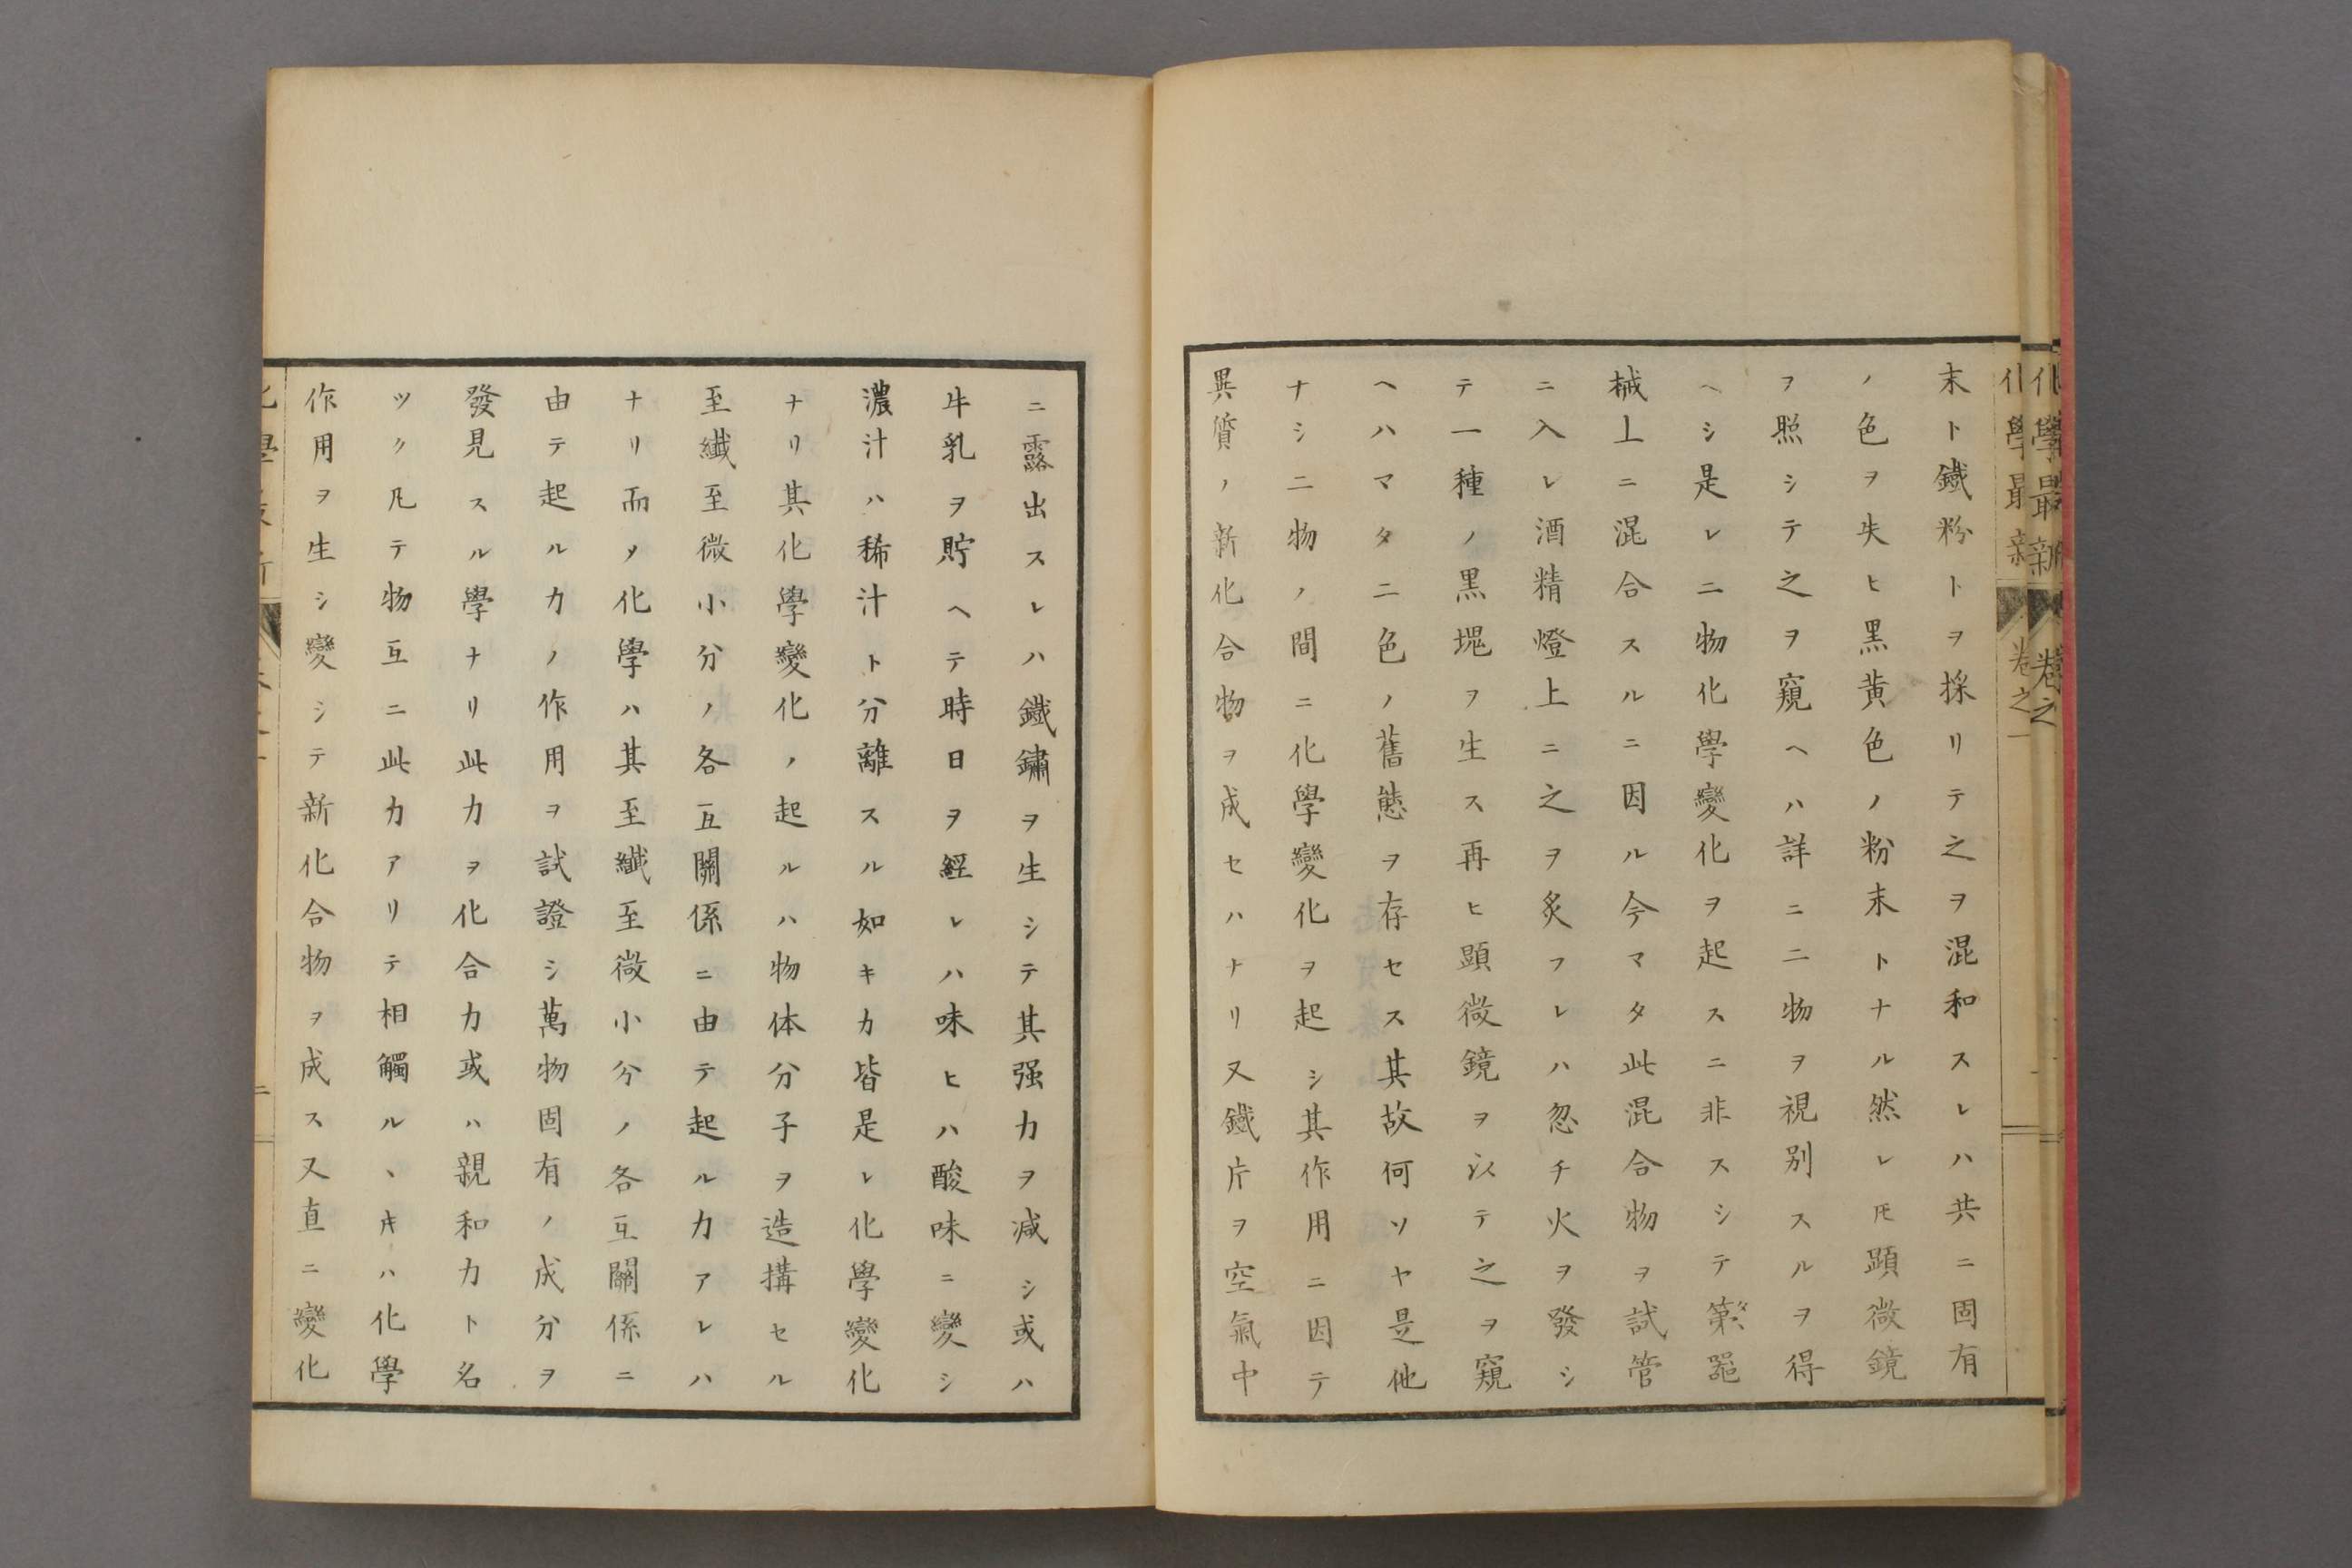 化學最新 卷之
化學最新 卷之一
末ト鐵粉トヲ採リテ之ヲ混和スレハ共ニ固有
ノ色ヲ失ヒ黒黄色ノ粉末トナル然レ𪜈顕微鏡
ヲ照シテ之ヲ窺ヘハ詳ニ二物ヲ視別スルヲ得
ヘシ是レ二物化學變化ヲ起スニ非スシテ第器
械上ニ混合スルニ因ル今マタ此混合物ヲ試管
ニ入レ酒精燈上ニ之ヲ炙フレハ忽チ火ヲ發シ
テ一種ノ黒塊ヲ生ス再ヒ顕微鏡ヲ以テ之ヲ窺
ヘハマタ二色ノ舊態ヲ存セス其故何ソヤ是他
ナシ二物ノ間ニ化學變化ヲ起シ其作用ニ因テ
異質ノ新化合物ヲ成セハナリ又鐵片ヲ空氣中
ニ露出スレハ鐵鏽ヲ生シテ其强力ヲ减シ或ハ
牛乳ヲ貯ヘテ時日ヲ經レハ味ヒハ酸味ニ變シ
濃汁ハ稀汁ト分離スル如キカ皆是レ化學變化
ナリ其化學變化ノ起ルハ物体分子ヲ造搆セル
至纖至微小分ノ各互關係ニ由テ起ル力アレハ
ナリ而〆化學ハ其至纖至微小分ノ各互關係ニ
由テ起ル力ノ作用ヲ試證シ萬物固有ノ成分ヲ
發見スル學ナリ此力ヲ化合力或ハ親和力ト名
ツク凡テ物互ニ此力アリテ相觸ルヽキハ化學
作用ヲ生シ變シテ新化合物ヲ成ス又直ニ變化